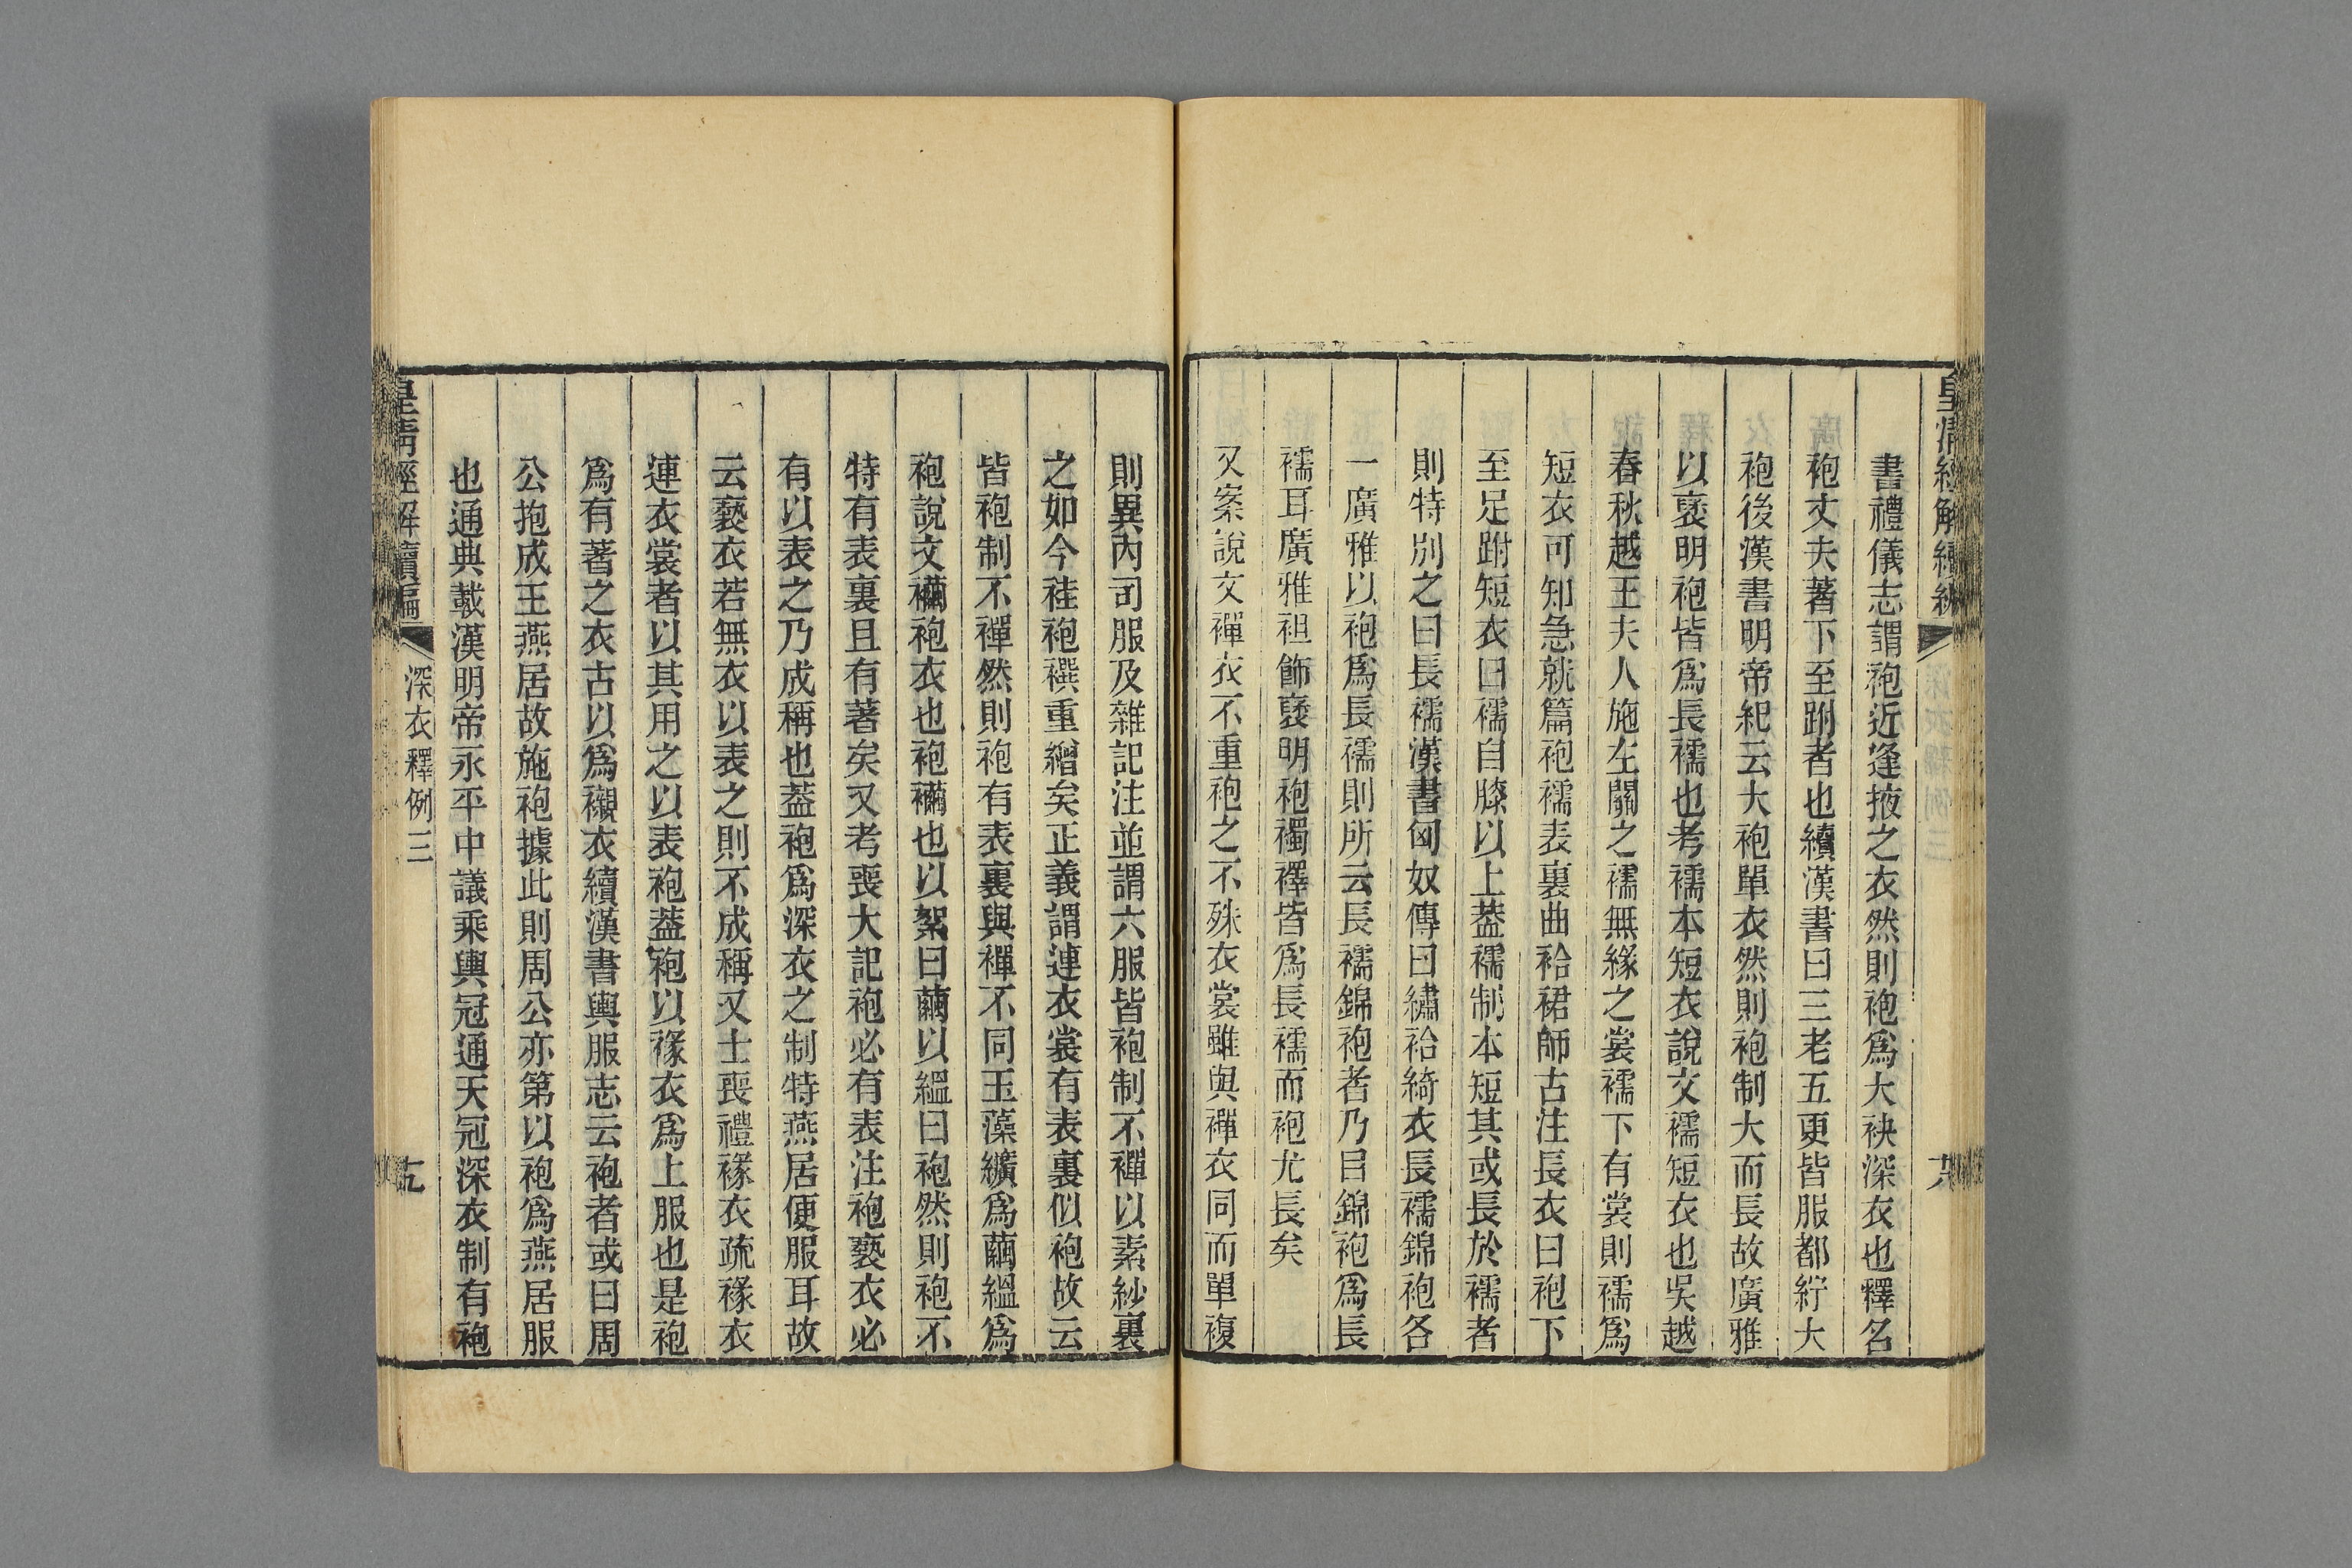 皇清經解續編
書禮儀志謂袍近逢掖之衣然則袍爲大袂深衣也釋名
袍丈夫著下至跗者也續漢書曰三老五更皆服都紵大
袍後漢書明帝紀云大袍單衣然則袍制大而長故廣雅
以褒明袍皆爲長襦也考襦本短衣說文襦短衣也吳越
春秋越王夫人施左關之襦無緣之裳襦下有裳則襦爲
短衣可知急就篇袍襦表裏曲袷裙師古注長衣曰袍下
至足跗短衣曰襦自膝以上葢襦制本短其或長於襦者
則特別之曰長襦漢書匈奴傳曰繡袷綺衣長襦錦袍各
一廣雅以袍爲長襦則所云長襦錦袍者乃目錦袍爲長
襦耳廣雅袒飾褒明袍襡襗皆爲長襦而袍尤長矣
又案說文襌衣不重袍之不殊衣裳雖與襌衣同而單複
則異內司服及雜記注並謂六服皆袍制不襌以素紗裏
之如今袿袍襈重繒矣正義謂連衣裳有表裏似袍故云
皆袍制不襌然則袍有表裏與襌不同玉藻纊爲繭縕爲
袍說文襺袍衣也袍襺也以絮曰繭以縕曰袍然則袍不
特有表裏且有著矣又考喪大記袍必有表注袍褻衣必
有以表之乃成稱也葢袍爲深衣之制特燕居便服耳故
云褻衣若無衣以表之則不成稱又士喪禮褖衣疏褖衣
連衣裳者以其用之以表袍葢袍以褖衣爲上服也是袍
爲有著之衣古以爲襯衣續漢書輿服志云袍者或曰周
公抱成王燕居故施袍據此則周公亦第以袍爲燕居服
也通典載漢明帝永平中議乘輿冠通天冠深衣制有袍
皇清經解續編
深衣釋例三